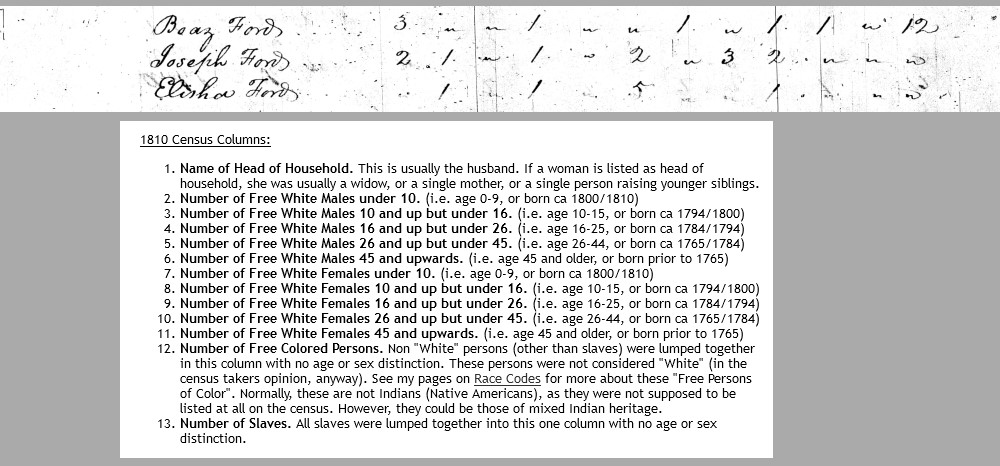 Boaz Ford 3 " " 1 " " 1 " 1 1 " 12
Joseph Ford 2 1 " 1 " 2 " 3 2 " " "
Elisha Ford 1 1 5 1 " "
1810 Census Columns:
1. Name of Head of Household. This is usually the husband. If a woman is listed as head of
household, she was usually a widow, or a single mother, or a single person raising younger siblings.
2. Number of Free White Males under 10. (i.e. age 0-9, or born ca 1800/1810)
3. Number of Free White Males 10 and up but under 16. (i.e. age 10-15, or born ca 1794/1800)
4. Number of Free White Males 16 and up but under 26. (i.e. age 16-25, or born ca 1784/1794)
5. Number of Free White Males 26 and up but under 45. (i.e. age 26-44, or born ca 1765/1784)
6. Number of Free White Males 45 and upwards. (i.e. age 45 and older, or born prior to 1765)
7. Number of Free White Females under 10. (i.e. age 0-9, or born ca 1800/1810)
8. Number of Free White Females 10 and up but under 16. (i.e. age 10-15, or born ca 1794/1800)
9. Number of Free White Females 16 and up but under 26. (i.e. age 16-25, or born ca 1784/1794)
10. Number of Free White Females 26 and up but under 45. (i.e. age 26-44, or born ca 1765/1784)
11. Number of Free White Females 45 and upwards. (i.e. age 45 and older, or born prior to 1765)
12. Number of Free Colored Persons. Non "White" persons (other than slaves) were lumped together
in this column with no age or sex distinction. These persons were not considered "White" (in the
census takers opinion, anyway). See my pages on Race Codes for more about these "Free Persons
of Color". Normally, these are not Indians (Native Americans), as they were not supposed to be
listed at all on the census. However, they could be those of mixed Indian heritage.
13. Number of Slaves. All slaves were lumped together into this one column with no age or sex
distinction.